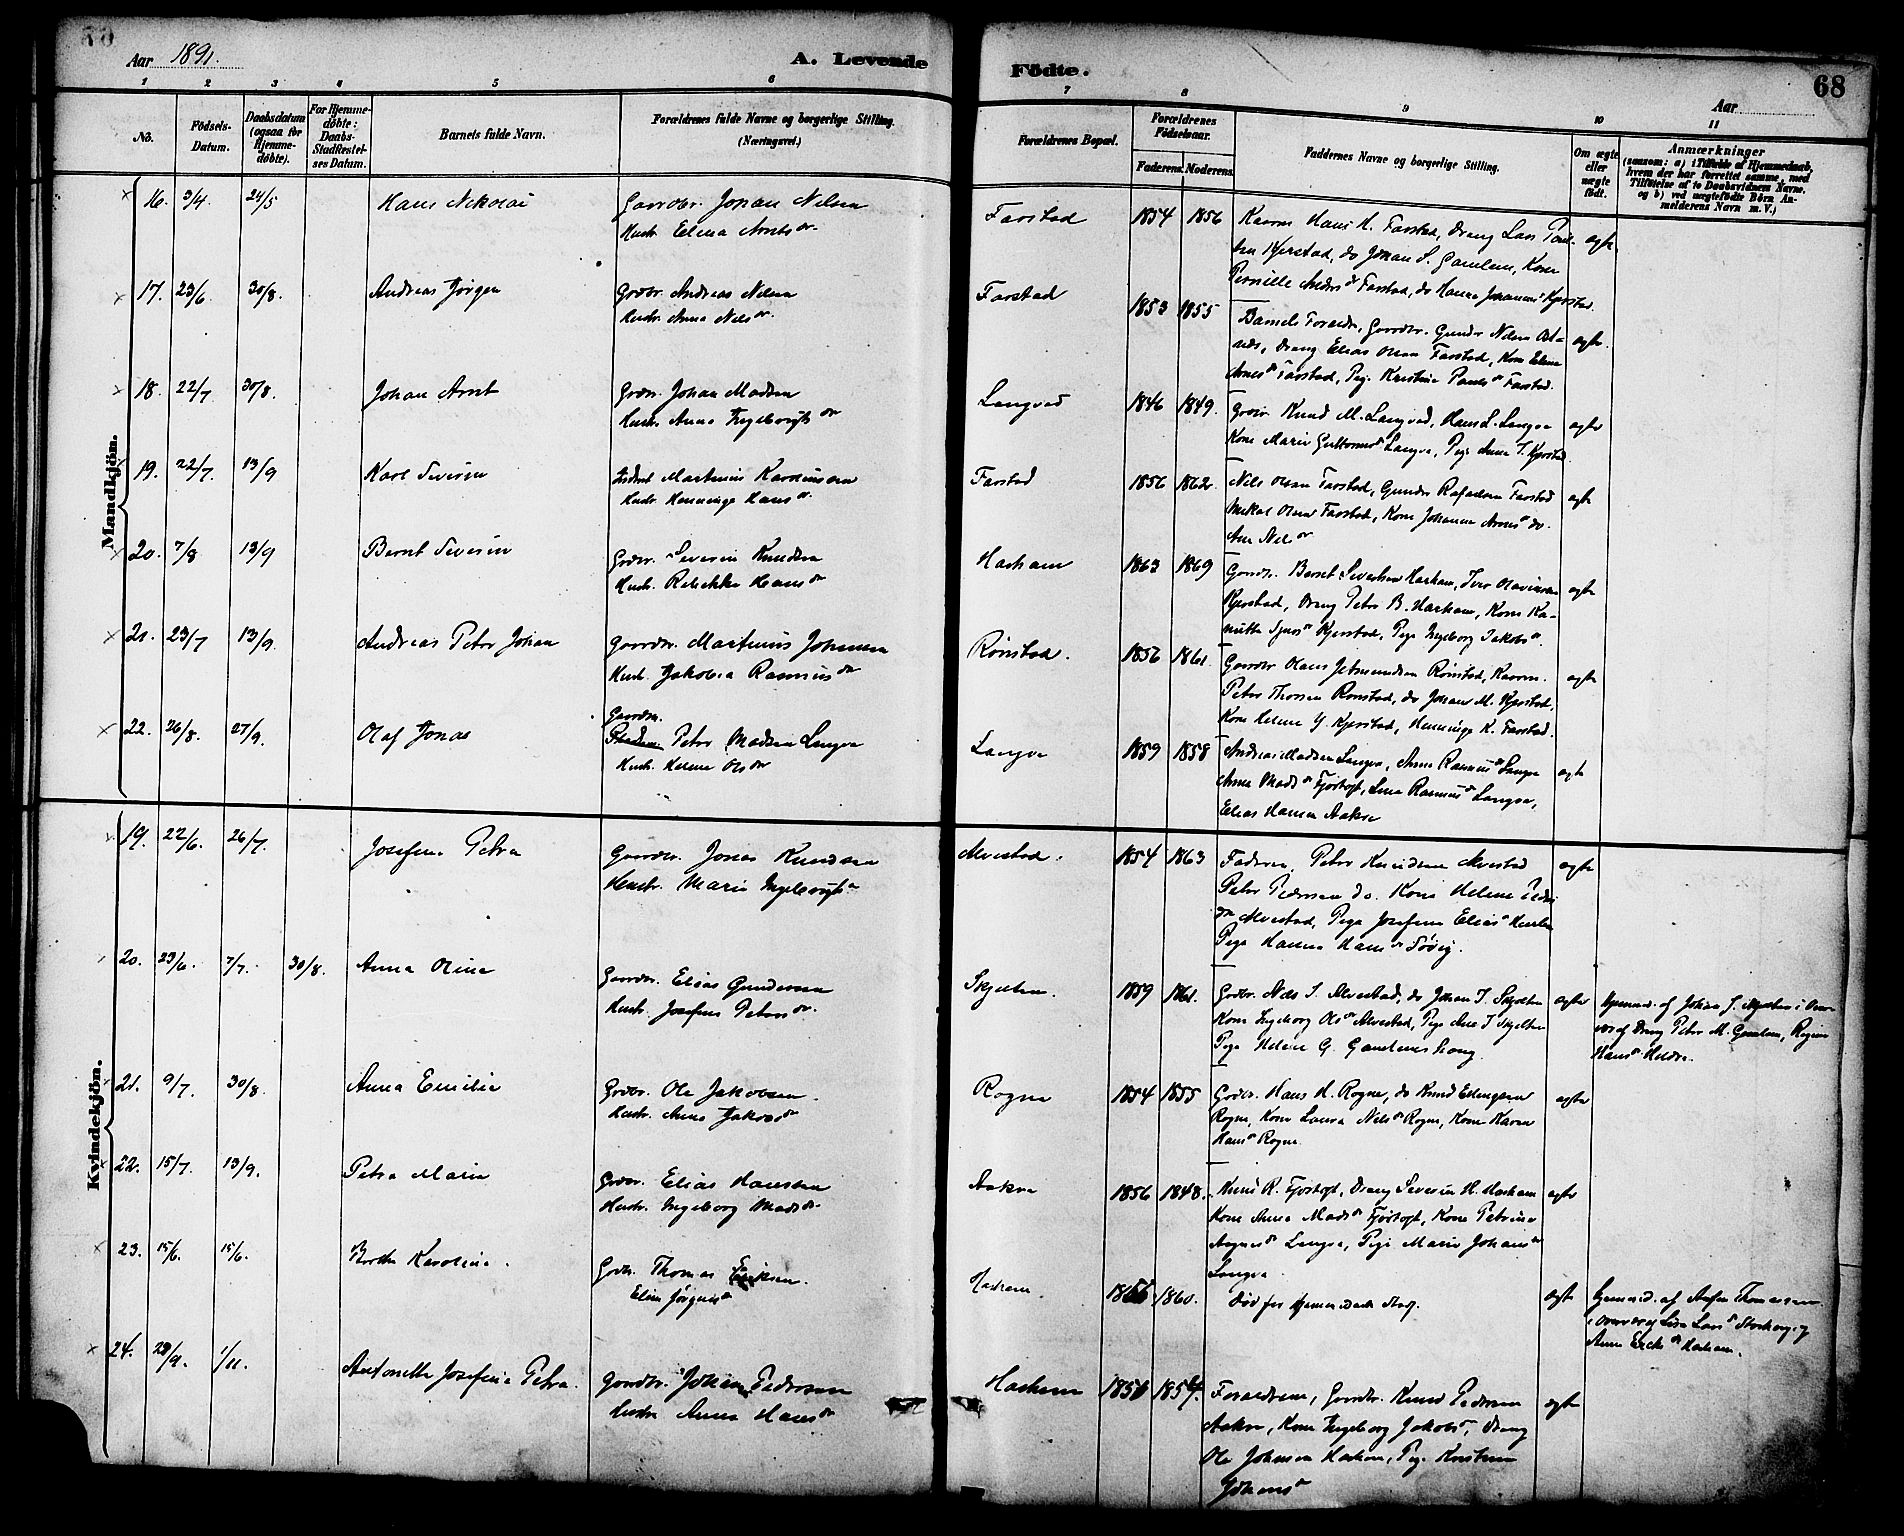 Aar 1891.
A. Levende
Födte.
68
Aar
1 2 3 4 5 6 7 8 9 10 11
No.
Födsels-
Datum.
Daabsdatum
(ogsaa for
Hjemme-
döbte).
For Hjemme-
döbte:
Daabs-
Stadfæstel-
ses Datum.
Barnets fulde Navn.
Forældrenes fulde Navne og borgerlige Stilling.
(Næringsvei.)
Forældrenes Bopæl.
Forældrenes
Födselsaar.
Faderens. Moderens.
Faddernes Navne og borgerlige Stilling.
Om ægte
eller
uægte
födt.
Anmærkninger
(saasom: a) i Tilfælde af Hjemmedaab,
hvem der har forrettet samme, med
Tilföielse af to Daabsvidners Navne.
og b) ved uægtefödte Börn An-
melderens Navn m. V.)
Mandkjön.
16. 3/4 24/5 Hans Nikolai Gaardbr. Johan Nilsen
Hustr. Elena Arnts dr.
Farstad 1854 1856 Kaarm. Hans H. Farstad, Dreng Lars Paul-
sen Kjerstad, do Johan S. Gamlem, Kone
Pernille Anders dr Farstad, do Hanna Johannes Kjerstad.
ægte
17. 23/6 30/8. Andreas Jørgen Grdbr. Andreas Nilsen
Hustr. Anna Nils dr.
Farstad 1853 1855 Barnets Forældr., Gaardbr. Gunder Nilsen
Dreng Elias Olsen Farstad, Kone Elena
Arnes dr Farstad, Pige Kristine Pauls dr Farstad.
ægte.
18. 22/7 30/8. Johan Arnt Grdbr. Johan Madsen
Hustr. Anna Ingeborgts dr
Longvad 1846 1849. Grdbr. Knud M. Longvad, Hans L. Longva
Kone Marie Guttorms dr Longva, Pige Anna J. Kjerstad
ægte
19. 22/7 13/9 Karl Severin Martinus Karolinssen
Hustr. Henninge Hans dr.
Farstad 1856 1862. Nils Olsen Farstad, Gunder Rafaelsen Farstad
Mikal Olsen Farstad, Kone Johanna Arnes dr do.
Ane Nils dr
ægte
20. 7/8 13/9 Bernt Severin Grdbr. Severin Knudsen
Hustr. Rebekka Hans dr
Harham 1863 1869 Gaardbr. Bernt Sivertsen Harham, Iver Olavinsen
Kjerstad, Dreng Peter B. Harham, Kone Ka-
Kjerstad, Pige Ingeborg Jakobs dr.
ægte
21. 23/7 13/9. Andreas Peter Johan Gaardbr. Martinus Johansen
Hustr. Jakobia Rasmus dr
Rönstad. 1856 1861. Gaardbr Olaus Jetmundsen Rönstad, Kaarm.
Peter Thorsen Rönstad, do Johans M. Kjerstad,
Kone Helene Y. Kjerstad, Henninge K. Farstad.
ægte
22. 26/8. 27/9. Olaf Jonas Gaardbr.
Peter Madsen Longva
Hustr. Helene Ols dr
Longva 1859 1858 Andreas Madsen Longva, Anne Rasmus dr Longva
Anna Mads dr Fjörtoft, Lina Rasmus dr Longva,
Elias Hansen Aakre
ægte
Kvindekjön.
19. 22/6. 26/7. Josefine Petra Gaardbr. Jonas Knudsen
Hustr. Marie Ingebrigts dr
Alvestad. 1854 1863 Faderen, Peter Knudsen Alvestad
Peter Pedersen do. Kone Helene Peder
dr Alvestad, Pige Josefine Elias dr
Pige Hanna Hans dr Søvig.
ægte
20. 23/6. 7/7. 30/8. Anna Oline Gaardbr. Elias Gundersen
Hustr. Josefine Peters dr.
Skjelten. 1859 1861. Grdbr. Nils J. Alvestad, do Johan J. Skjelten
Kone Ingeborg Ols dr Alvestad, Pige Ane J Skjelten
Pige Helene G. Gamlemshaug
ægte
Hjemmed. af Johan J. Skjelten i Over-
vær af Dreng Peter M. Gamlem, Regine
Hans dr Hildre.
21. 9/7. 30/8 Anna Emilie Grdbr. Ole Jakobsen.
Hustr. Anne Jakobs dr
Rogne 1854 1855 Grdbr. Hans H. Rogne, do Knud Ellingsen
Rogne, Kone Laura Nils dr Rogne, Kone Karen
Hans dr Rogne.
ægte
22. 15/7. 13/9. Petra Marie Grdbr. Elias Hanssen
Hustr. Ingeborg Mads dr.
Aakre 1856 1848. Knud R. Fjørtoft, Dreng Severin H. Harham
Kone Anna Mads dr Fjørtoft, Kone Petrine
Aagnes dr Longva, Pige Marie Johans dr
Longva.
ægte
23. 15/6. 15/6. Berthe Karoline. Grdbr. Thomas Eriksen.
Eline Jørgens dr
Harham. 1860. Död för Hjemmedaab Stadf.
ægte
Hjemmed. af Thomassen
i Overvær af Lise Lars dr Storhaug og
Anne Eriks dr Harham.
24. 29/9. 1/11. Antonette Josefine Petra. Gaardbr. Johan Pedersen
Hustru Anna Hans dr
Harham 1854. Forældrene, Gaardbr. Knud Pedersen
Aakre, Kone Ingeborg Jakobs dr, Dreng
Ole Johansen Harham, Pige Kristine
Johans dr
ægte